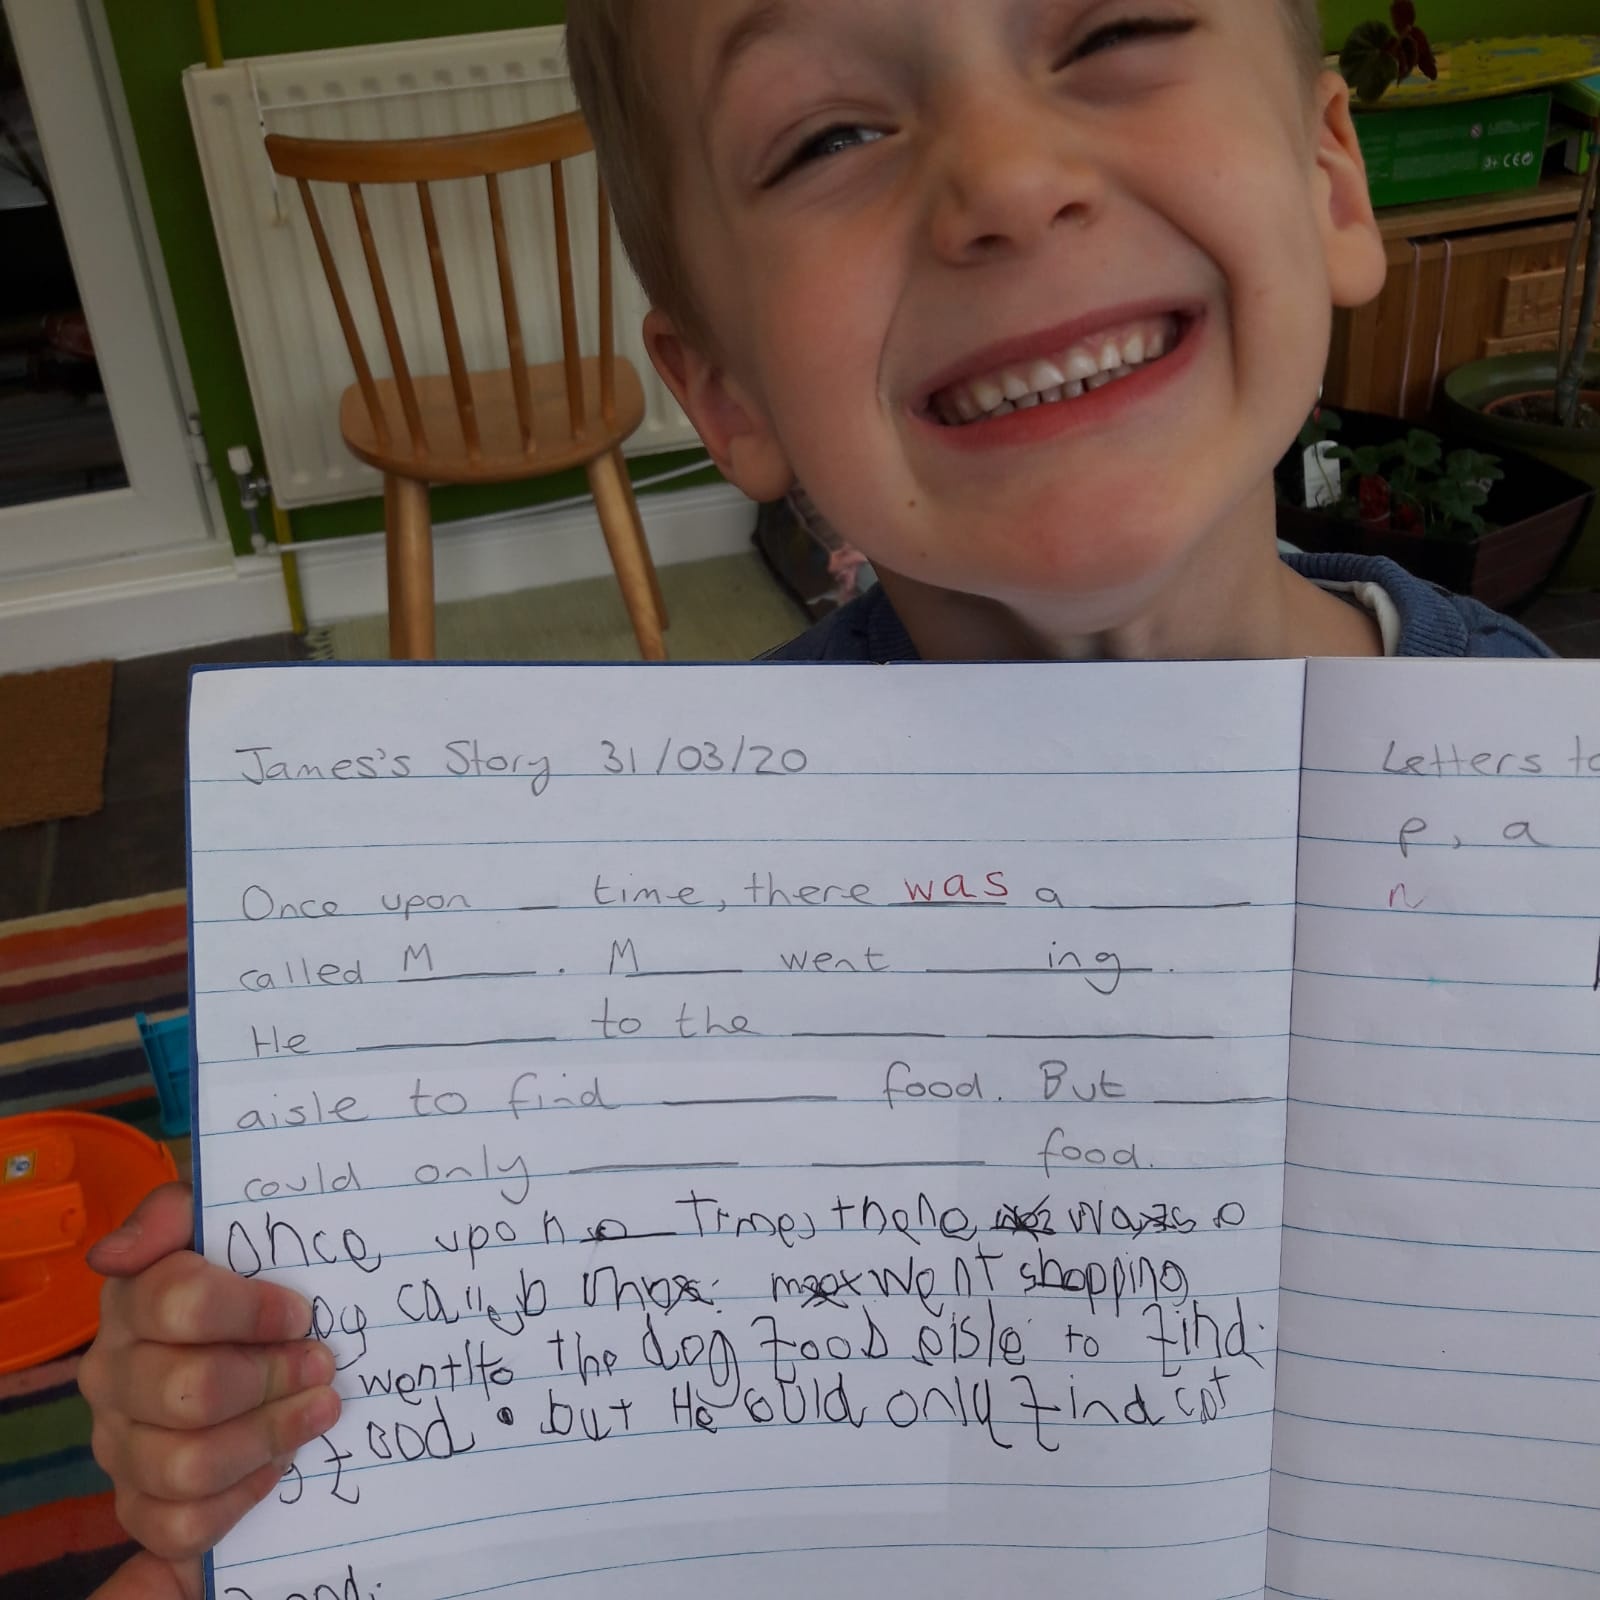 James's Story 31/03/20
Once upon __ time, there was a ______
called M______. M______ went ______ing.
He ______ to the ______ ______
aisle to find ______ food. But ______
could only ______ ______ food.
Once upon a Time, there was a
og called Max. max went shopping
went to the dog food aisle to find.
g food. but He could only find cat
end.
Letters to
p, a
n
3+ CE